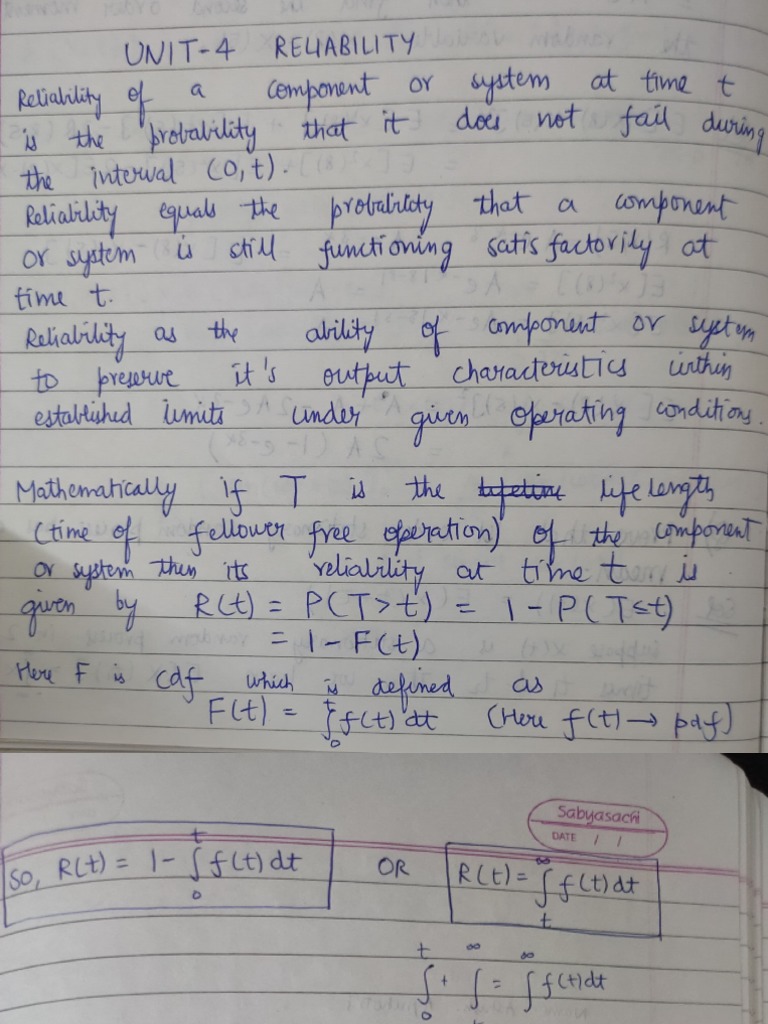 UNIT-4 RELIABILITY
Reliability of a component or system at time t
is the probability that it does not fail during
the interval (0,t).
Reliability equals the probability that a component
or system is still functioning satisfactorily at
time t.
Reliability as the ability of component or system
to preserve it's output characteristics within
established limits under given operating conditions.
Mathematically if T is the lifetime life length
(time of fellower free operation) of the component
or system then its reliability at time t is
given by R(t) = P(T>t) = 1-P(T≤t)
= 1-F(t)
Here F is cdf which is defined as
F(t) = ∫₀ᵗ f(t) dt (Here f(t) → pdf)
Sabyasachi
DATE / /
So, R(t) = 1- ∫₀ᵗ f(t) dt OR R(t) = ∫ₜ^∞ f(t) dt
∫₀ᵗ + ∫ₜ^∞ = ∫^∞ f(t) dt